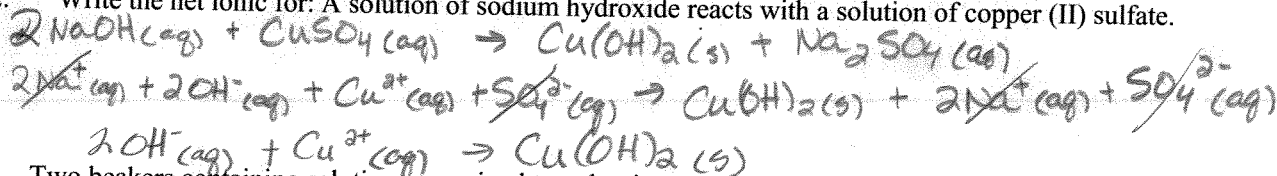 Write the net ionic for: A solution of sodium hydroxide reacts with a solution of copper (II) sulfate.
2 NaOH(aq) + CuSO4 (aq) → Cu(OH)2 (s) + Na2SO4 (aq)
2Na+ (aq) + 2OH- (aq) + Cu2+ (aq) + SO42- (aq) → Cu(OH)2 (s) + 2Na+ (aq) + SO42- (aq)
2OH- (aq) + Cu2+ (aq) → Cu(OH)2 (s)
Two beakers containing